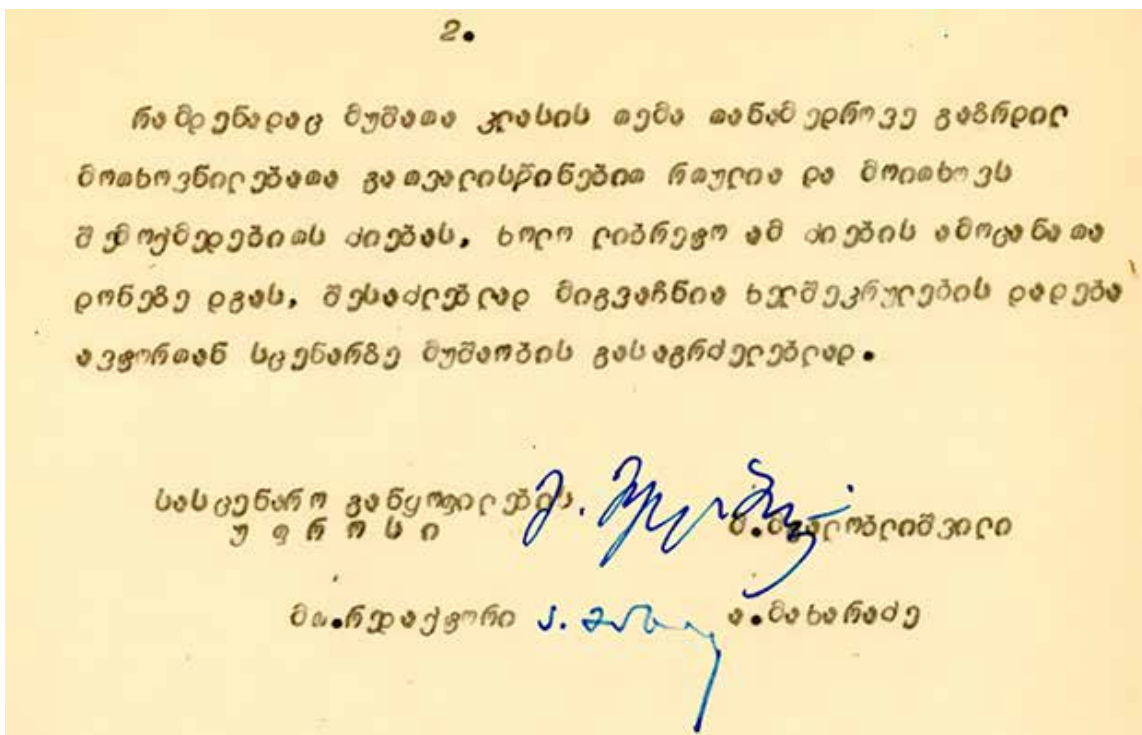 2.
რამდენადაც მუშათა კლასის თემა თანამედროვე გაზრდილ
მოთხოვნილებათა გათვალისწინებით რთულია და მოითხოვს
შემოქმედებითს ძიებას, ხოლო ლიბრეტო ამ ძიების ამოცანათა
დონეზე დგას, შესაძლებლად მიგვაჩნია ხელშეკრულების დადება
ავტორთან სცენარზე მუშაობის გასაგრძელებლად.
სასცენარო განყოფილების მ. მგალობლიშვილი
უფროსი
მთ.რედაქტორი ა.მახარაძე